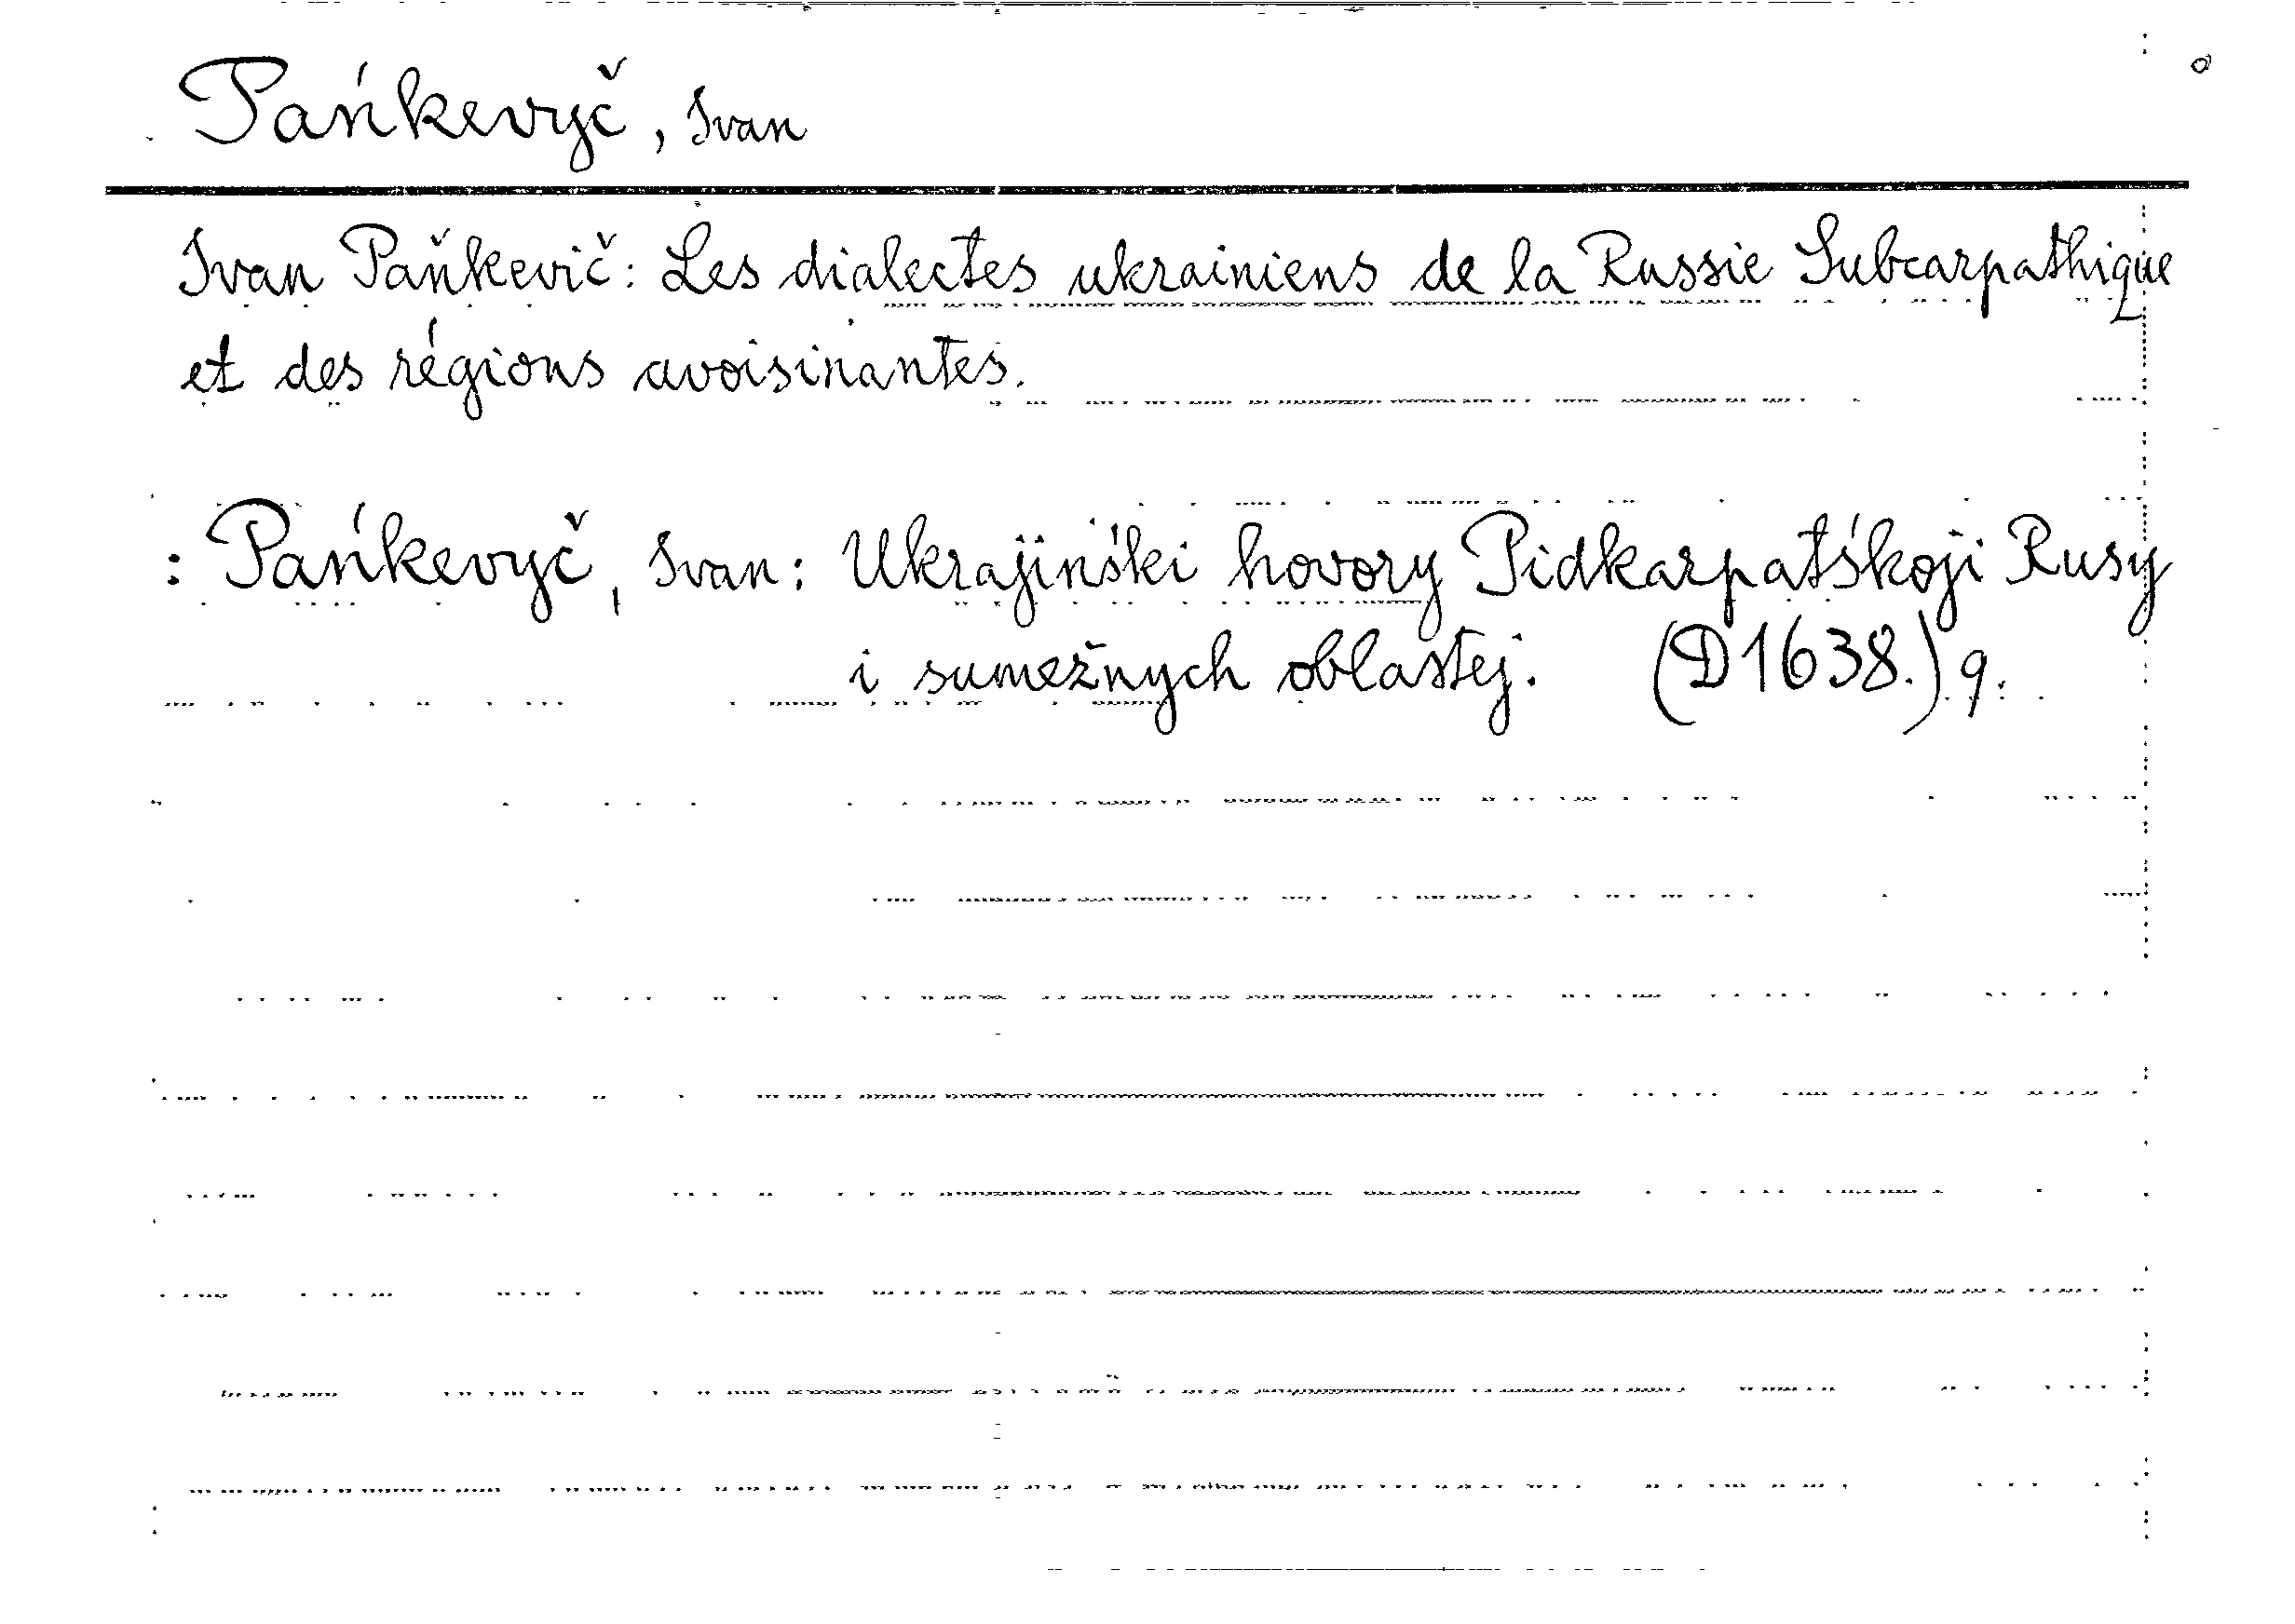 Pańkevyč, Ivan
Ivan Paňkevič: Les dialectes ukrainiens de la Russie Subcarpathique
et des régions avoisinantes.
: Pańkevyč, Ivan: Ukrajinśki hovory Pidkarpatśkoji Rusy
i sumežnych oblastej. (D1638.) q.